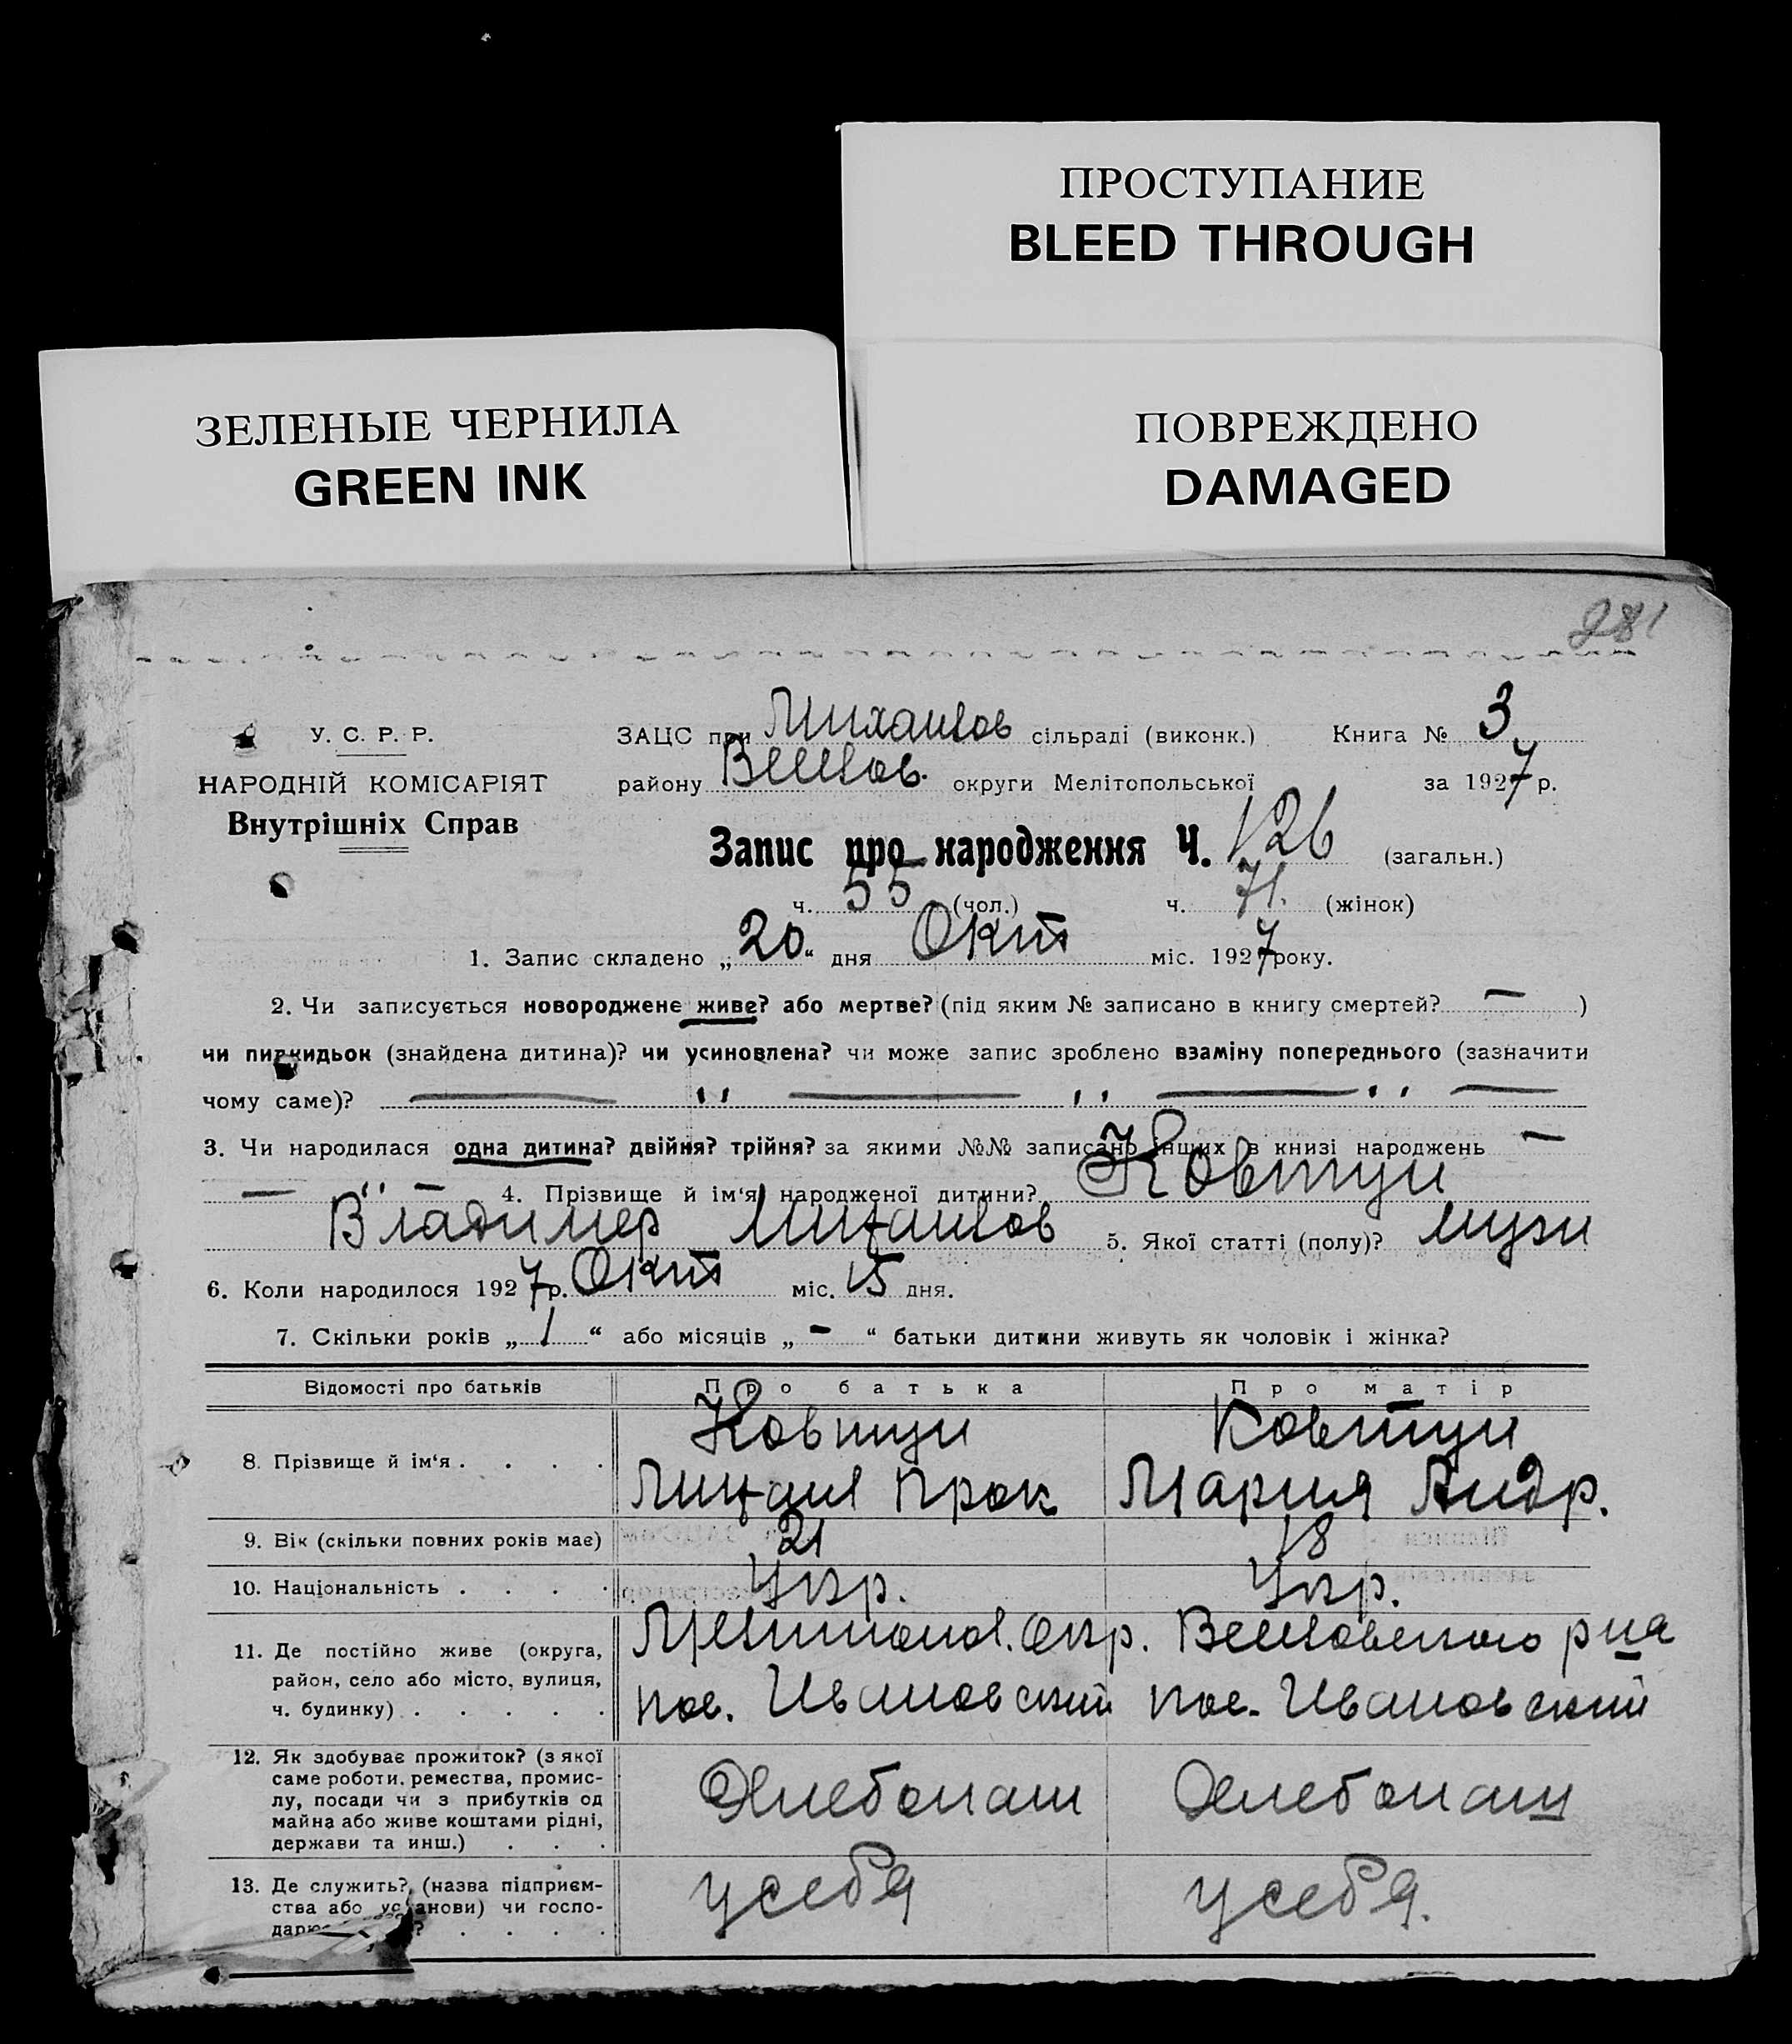 ПРОСТУПАНИЕ
BLEED THROUGH
ЗЕЛЕНЫЕ ЧЕРНИЛА
GREEN INK
ПОВРЕЖДЕНО
DAMAGED
281
У. С. Р. Р.
НАРОДНІЙ КОМІСАРІЯТ
Внутрішніх Справ
ЗАЦС при Михайлов сільраді (виконк.) Книга № 3
району Веселов. округи Мелітопольської за 1927 р.
Запис про народження Ч. 126 (загальн.)
ч. 55 (чол.) ч. 71. (жінок)
1. Запис складено „20“ дня Окт міс. 1927 року.
2. Чи записується новороджене живе? або мертве? (під яким № записано в книгу смертей? — )
чи пидкидьок (знайдена дитина)? чи усиновлена? чи може запис зроблено взаміну попереднього (зазначити
чому саме)? — " — " — " —
3. Чи народилася одна дитина? двійня? трійня? за якими №№ записано інших в книзі народжень —
— " — 4. Прізвище й ім‘я народженої дитини? Ковтун
Владимер Михайлов 5. Якої статті (полу)? мужи
6. Коли народилося 1927 р. Окт міс. 15 дня.
7. Скільки років „ 1 “ або місяців „ - “ батьки дитини живуть як чоловік і жінка?
Відомості про батьків Про батька Про матір
8. Прізвище й ім‘я . . . . Ковтун Ковтун
Михаил Прок Мария Андр.
9. Вік (скільки повних років має) 21 18
10. Національність . . . . Укр. Укр.
11. Де постійно живе (округа, район, село або місто, вулиця, ч. будинку) . . . . . Мелитопол. Окр. Веселовского рна
пос. Ивановский пос. Ивановский
12. Як здобуває прожиток? (з якої саме роботи, ремества, промислу, посади чи з прибутків од майна або живе коштами рідні, держави та инш.) . . . Хлебопаш Хлебопаш
13. Де служить? (назва підприємства або установи) чи госпо- у себя у себя.